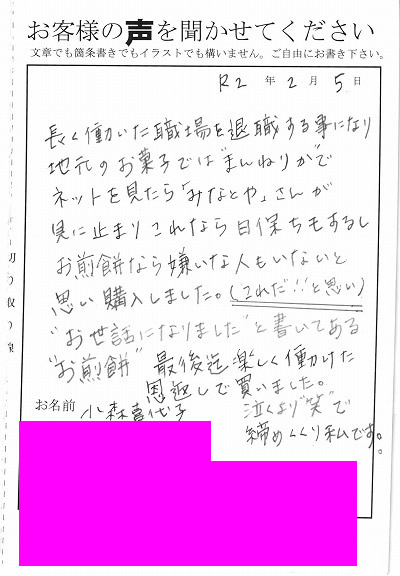 お客様の声を聞かせてください
文章でも箇条書きでもイラストでも構いません。ご自由にお書き下さい。
R2年2月5日
長く働いた職場を退職する事になり
地元のお菓子では"まんねりか"で
ネットを見たら「みなとや」さんが
見に止まりこれなら日保ちもするし
お煎餅なら嫌いな人もいないと
思い購入しました。(これだ!!と思い)
"お世話になりました"と書いてある
"お煎餅" 最後迄楽しく働けた
恩返しで買いました。
泣くより"笑"で
締めくくり私です。
お名前 小森喜代子
切り取り線